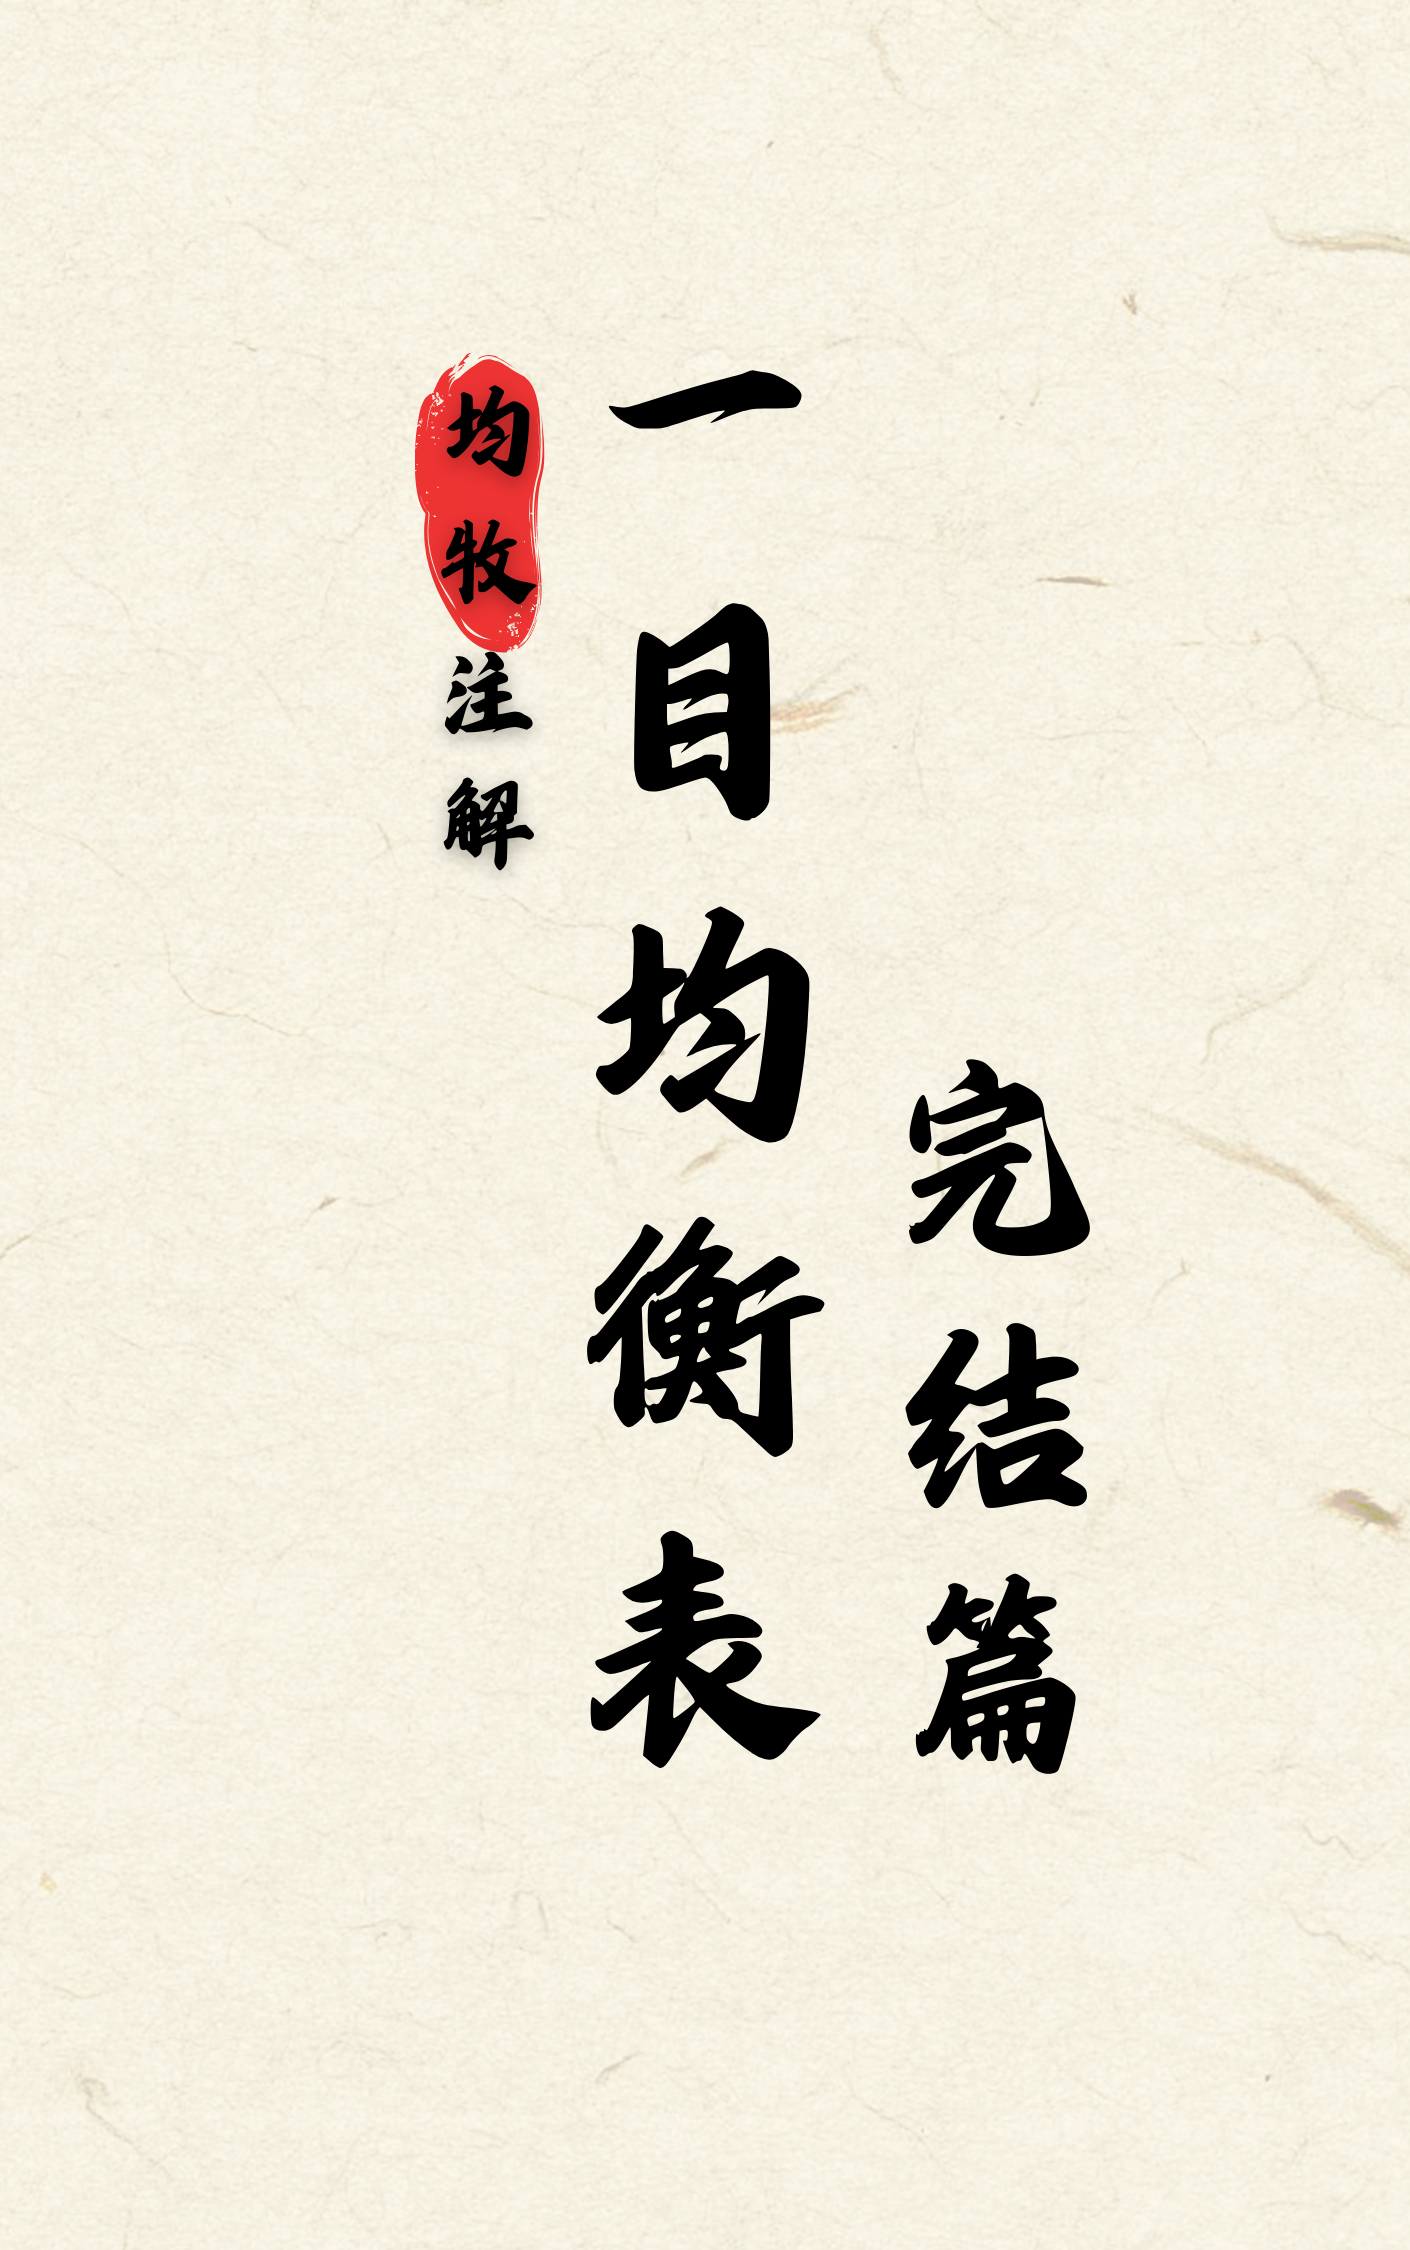 一目均衡表
完结篇
均牧注解